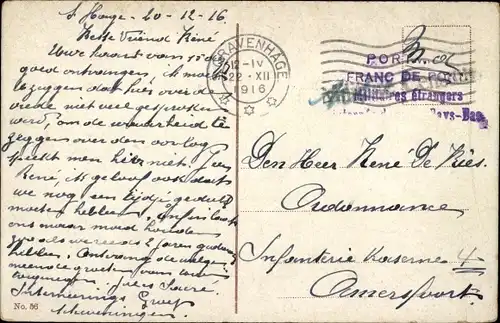 s'Hage 20-12-16
Beste Vriend René
Uwe kaart van 15 de
goed ontvangen, ik moet
U zeggen dat hier over de
vrede niet veel gesproken
werd, om de waarheid te
zeggen over den oorlog
spreekt men hier niet. Ja
René, ik geloof ook dat
we nog een tijdje geduld
moeten hebben. Enfin laat
ons maar moed houden
zoo als we reeds 2 jaren gedaan
hebben. Ontvang de welge-
meende groeten van uwe
Jules
Interneerings Groep
Scheveningen
No. 56
'S GRAVENHAGE
12-IV
22.XII
1916
PORT
FRANC DE PORT
Militaires étrangers
Pays-Bas
Den Heer René De Kies
Ordonnance
Infanterie Kaserne 4
Amersfoort